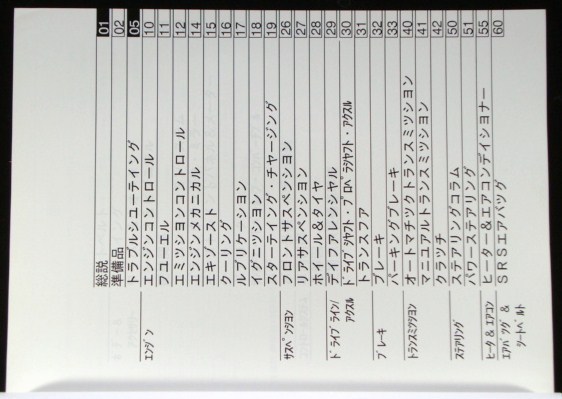 総説 01
準備品 02
トラブルシューティング 05
エンジン エンジンコントロール 10
フューエル 11
エミッションコントロール 12
エンジンメカニカル 14
エキゾースト 15
クーリング 16
ルブリケーション 17
イグニッション 18
スターティング・チャージング 19
サスペンション フロントサスペンション 26
リアサスペンション 27
ホイール&タイヤ 28
ドライブライン/アクスル ディファレンシャル 29
ドライブシャフト・プロペラシャフト・アクスル 30
トランスファ 31
ブレーキ ブレーキ 32
パーキングブレーキ 33
トランスミッション オートマチックトランスミッション 40
マニュアルトランスミッション 41
クラッチ 42
ステアリング ステアリングコラム 50
パワーステアリング 51
ヒータ&エアコン ヒーター&エアコンディショナー 55
エアバッグ&シートベルト SRSエアバッグ 60